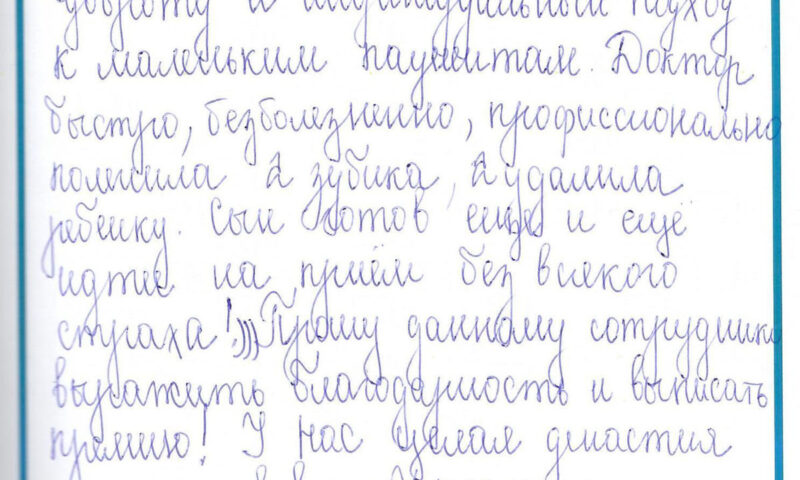 доброту и индивидуальный подход
к маленьким пациентам. Доктор
быстро, безболезненно, профиссионально
полечила 2 зубика, 2 удалила
ребенку. Сын готов ещё и ещё
идти на приём без всякого
страха!)))Прошу данному сотруднику
выражить благодарность и выписать
премию! У нас целая династия